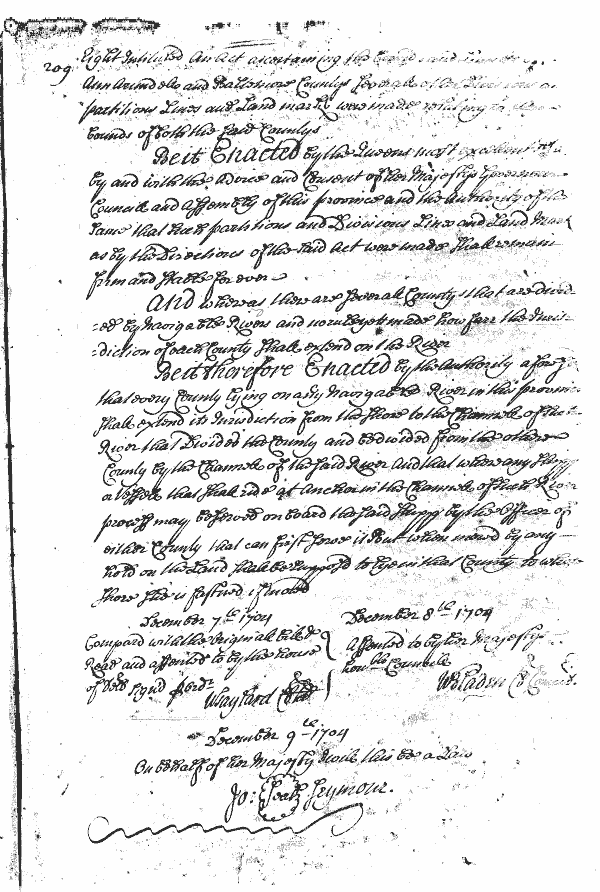 209 Eight Intituled An Act ascertaining the
Ann Arundel and Baltemore Countys Severall other Divisions
partitions Lines and Land marks were made relating to
bounds of both the said Countys
Be it Enacted by the Queens most excellent
by and with the Advice and Consent of her Majestys Governour
Councill and Assembly of this province and the Authority of the
same that such partitions and Divisions Lines and Land Marks
as by the Directions of the said Act were made shall remain
firm and stable for ever
And whereas there are severall Countys that are divid
=ed by Navigable Rivers and no rule yet made how farr the Juris
=diction of each County shall extend on the River
Be it therefore Enacted by the Authority afores
that every County lying on any Navigable River in this province
shall extend its Jurisdiction from the shore to the Channell of that
River that Divided the County and be divided from the other
County by the Channell of the said River And that where any
a Vessell that shall ride at Anchor in the Channell of such River
process may be served on board the said by the Officer of
either County that can first serve it But when moored by any
hold on the Land shall be to lye in that County to whose
shore she is fastned
December 7th 1704 December 8th 1704
Compard with the Originall bill Assented to by her Majestys
Read and assented to by the house honble Councill
of W Taylard W Bladen
December 9th 1704
On behalf of her Majesty I will this be a Law
Jo: Seal Seymour.